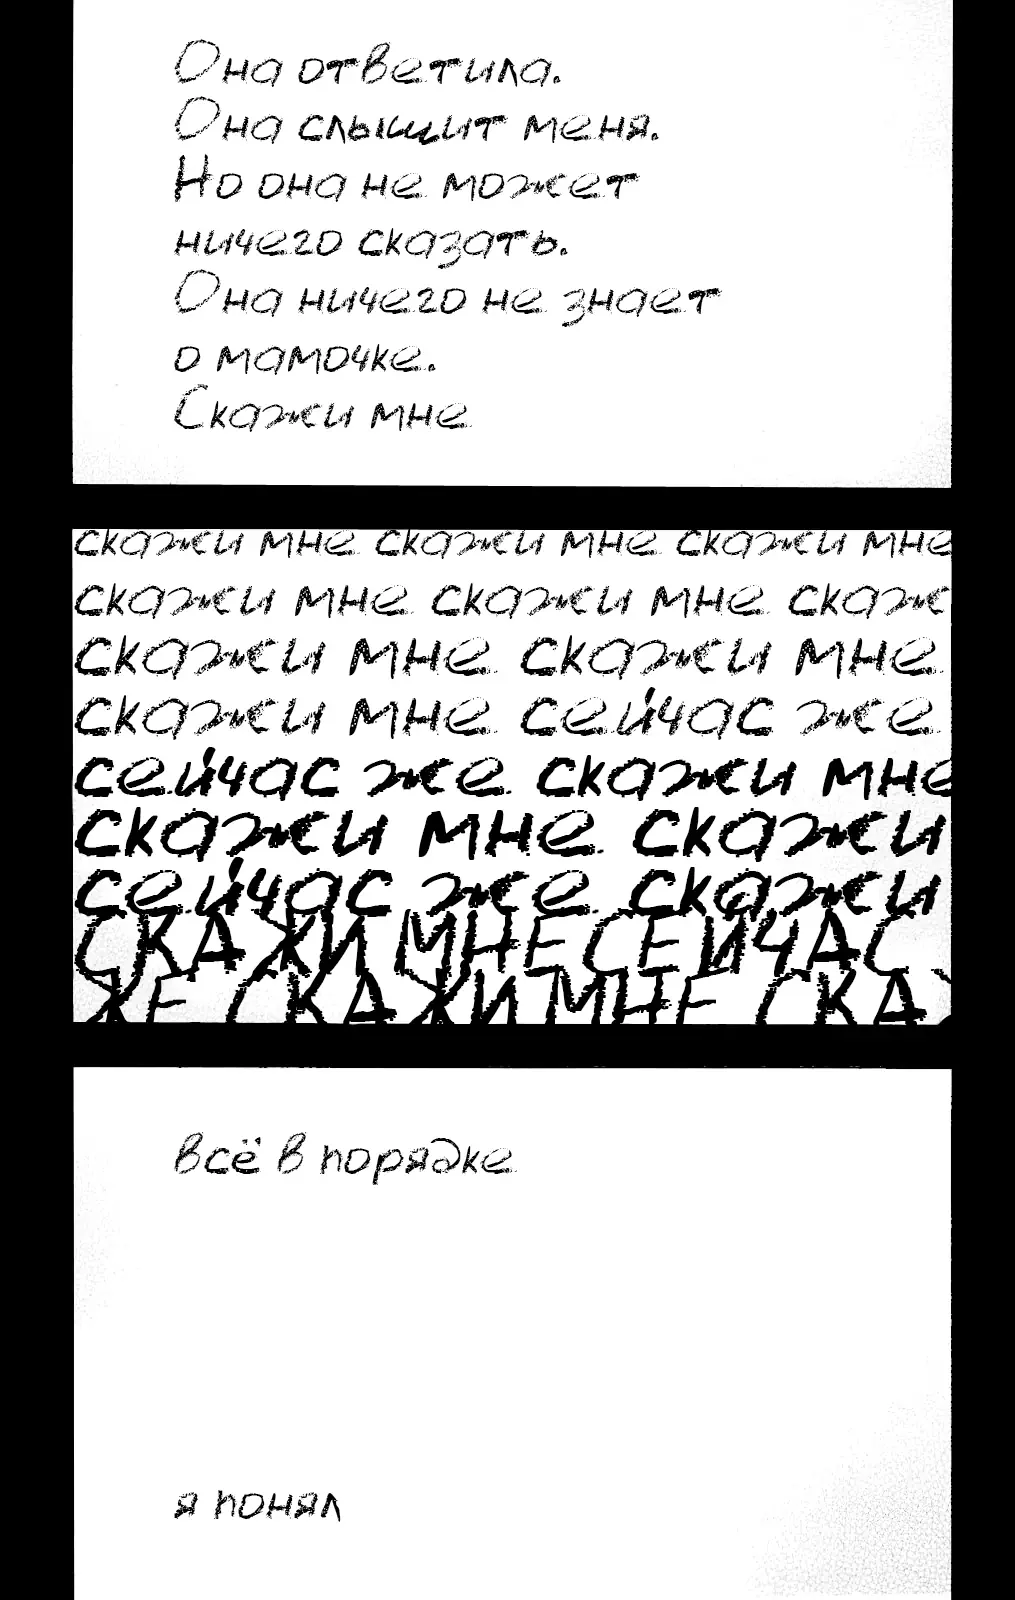 Она ответила.
Она слышит меня.
Но она не может
ничего сказать.
Она ничего не знает
о мамочке.
Скажи мне
скажи мне скажи мне скажи мне
скажи мне скажи мне скаж
скажи мне скажи мне
скажи мне сейчас же
сейчас же скажи мне
скажи мне скажи
сейчас же скажи
СКАЖИ МНЕ СЕЙЧАС
ЖЕ СКАЖИ МНЕ СКА
всё в порядке
я понял